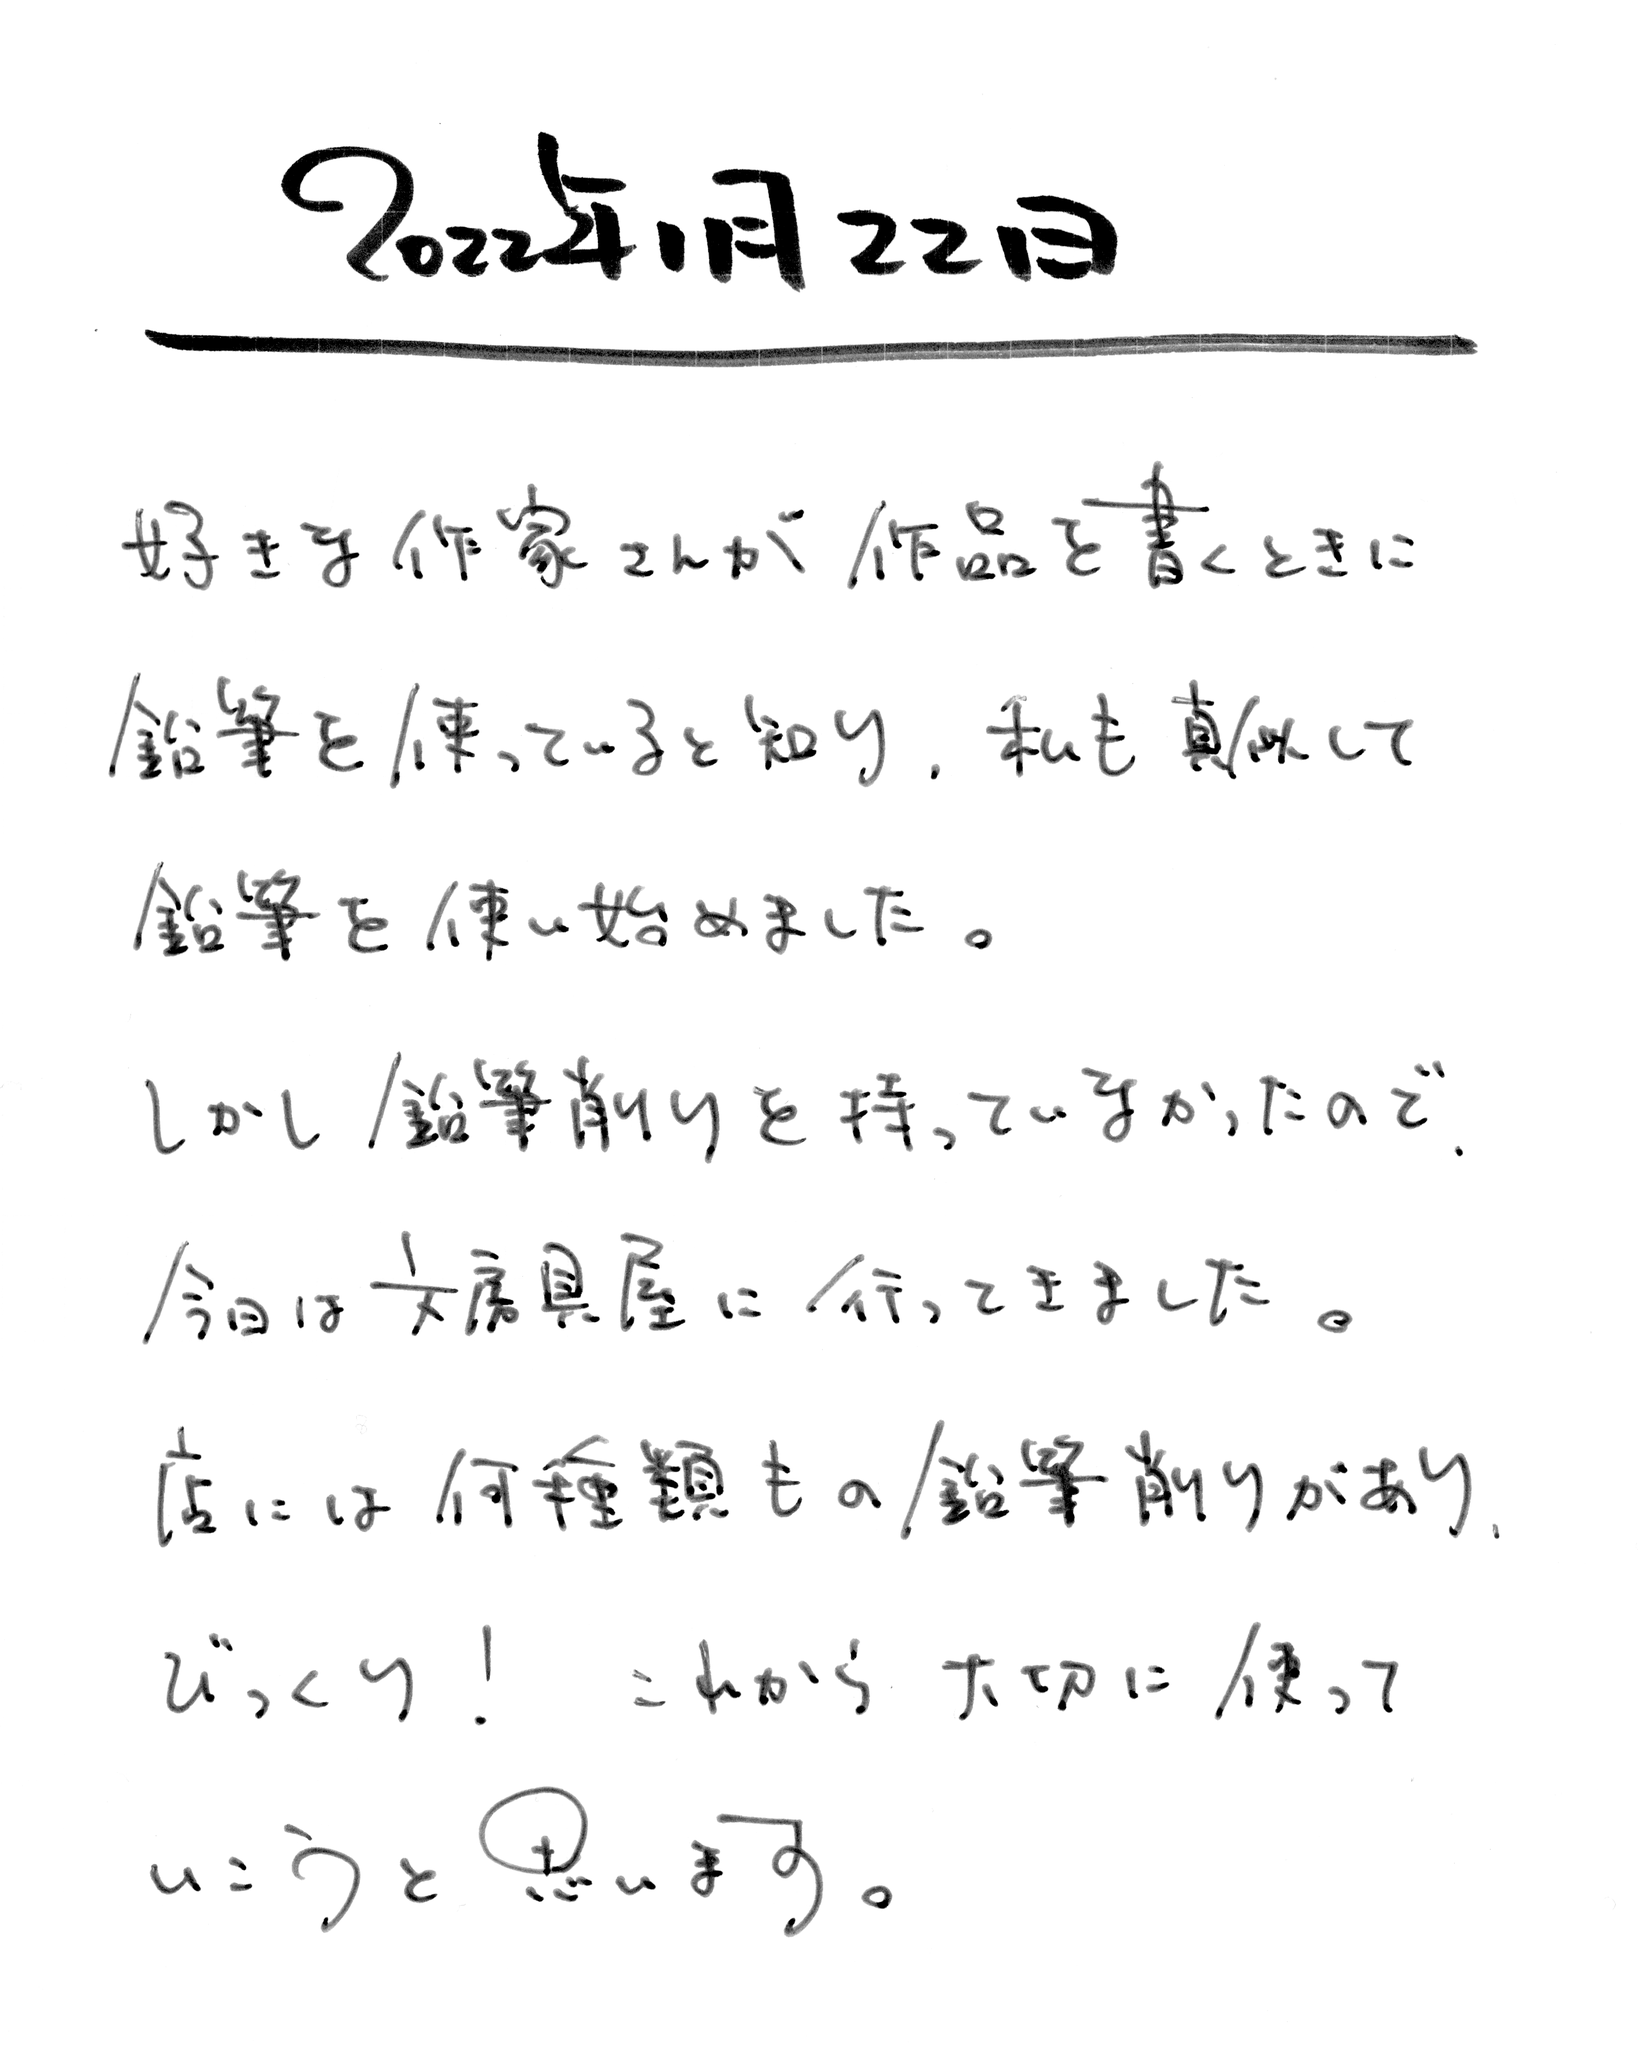 2022年1月22日
好きな作家さんが作品を書くときに
鉛筆を使っていると知り、私も真似して
鉛筆を使い始めました。
しかし鉛筆削りを持っていなかったので、
今日は文房具屋に行ってきました。
店には何種類もの鉛筆削りがあり、
びっくり! これから大切に使って
いこうと思います。